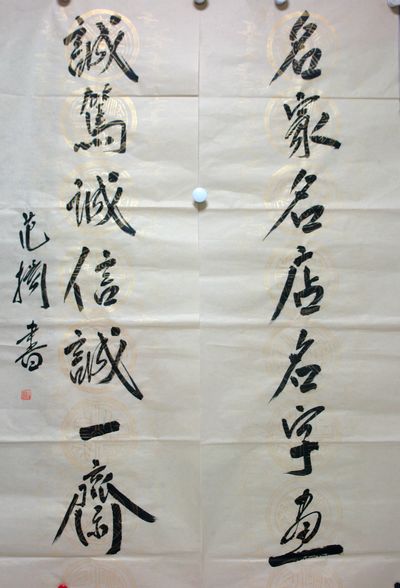 名家名店名字畫
誠篤誠信誠一齋
范 書